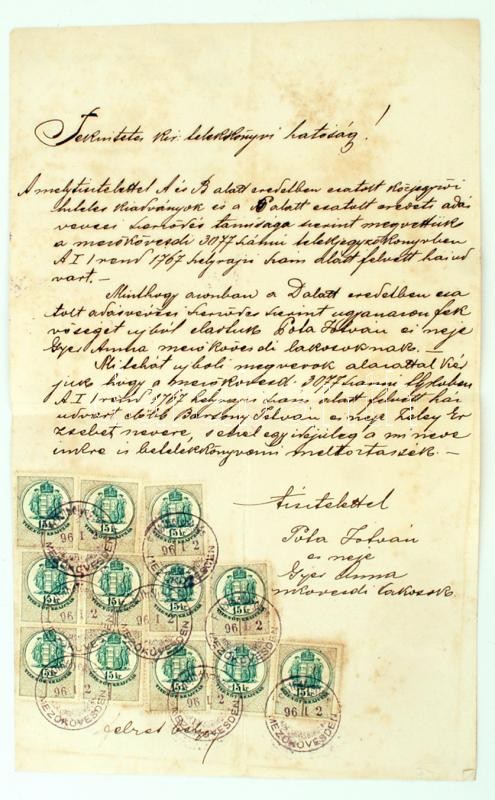 Tekintetes kir. telekkönyvi hatóság!
A mélytisztelettel A és B alatt eredetben csatolt közjegyzői
hiteles kiadványok és a C alatt csatolt eredeti adás
vevési szerződés tanusága szerint megvettük
a mezőkövesdi 3077 számú telekjegyzőkönyvben
A I 1 rend 1767 helyrajzi szám alatt felvett ház ud
vart. —
Minthogy azonban a D alatt eredetben csa
tolt adásvevési szerződés szerint ugyanazon fek
vőséget ujból eladtuk Póta István és neje
Gyes Anna mezőkövesdi lakosoknak. —
ujboli megvevők alázattal kér
jük hogy a mezőkövesdi 3077 számú
A I 1 rend 1767 helyrajzi szám alatt felvett ház
udvart előbb István és neje Er
zsébet nevére, s ezzel egyidejüleg a mi neve
inkre is betelekkönyvezni méltóztassék. —
tisztelettel
Póta István
és neje
Gyes Anna
mkövesdi lakosok
15 kr
TIZENÖT KRAJCZÁR
96 1 2
MEZŐKÖVESDEN